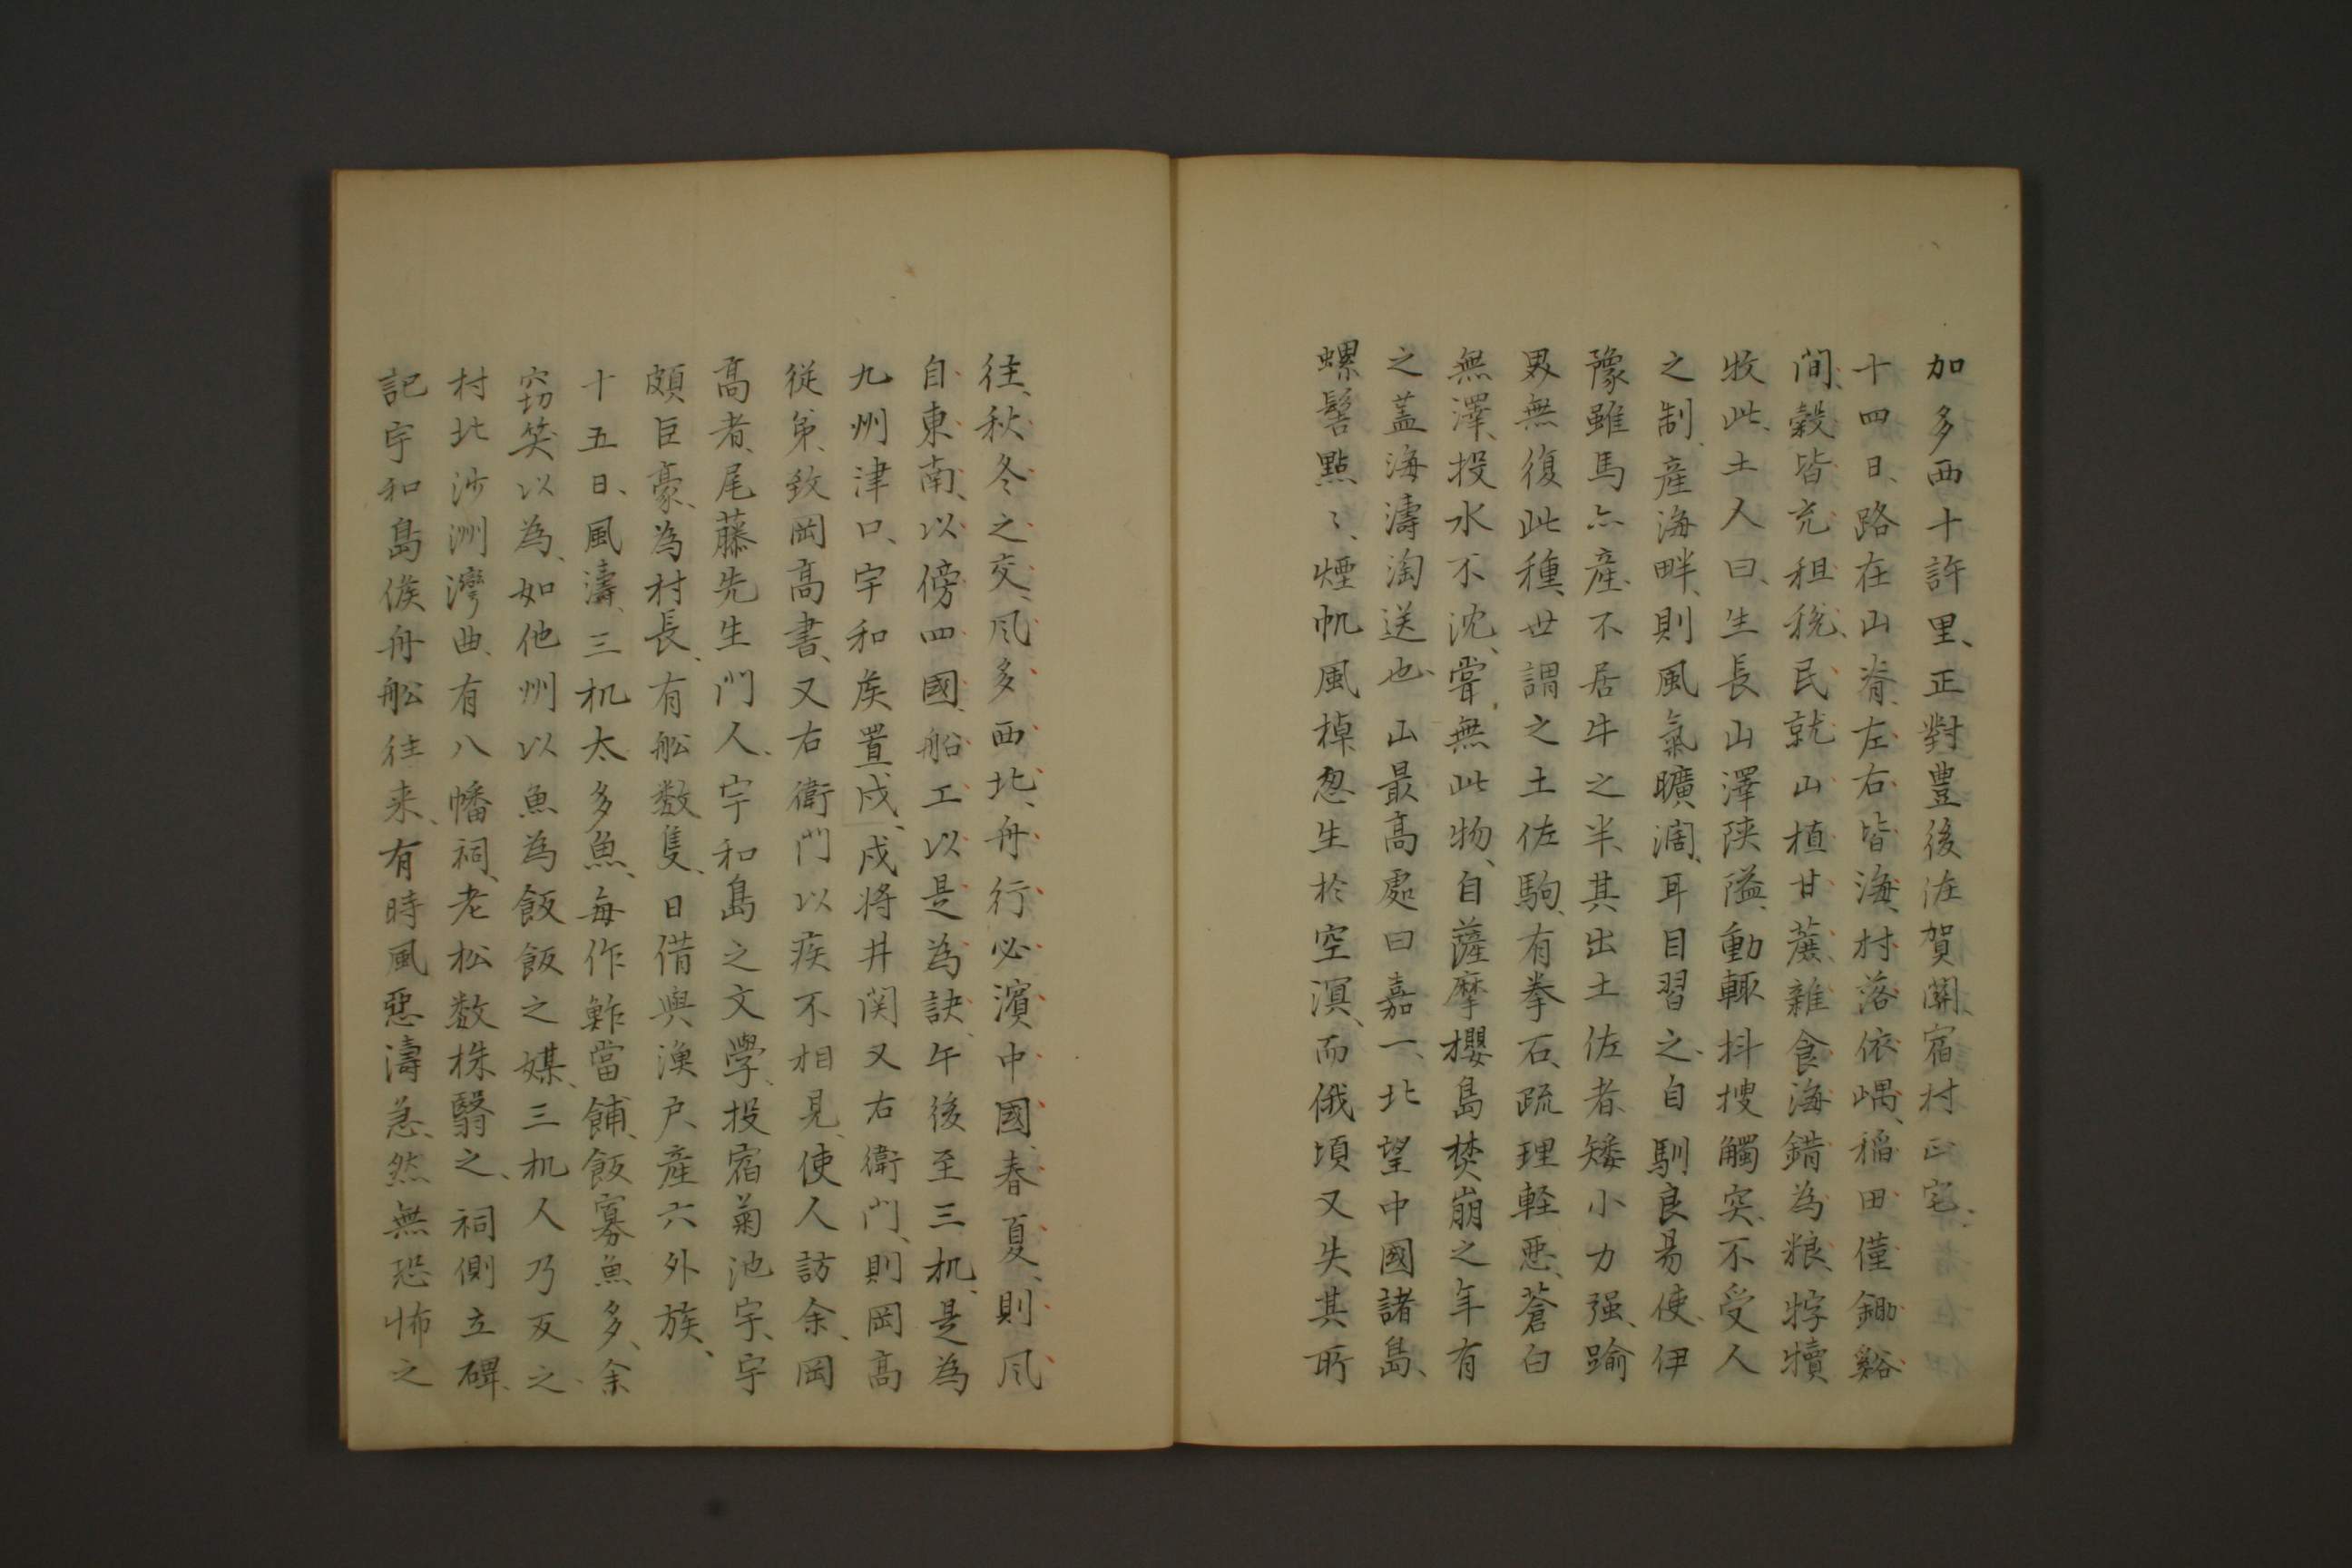 加多西十許里、正對豊後佐賀關、宿村正宅、
十四日、路在山脊、左右皆海、村落依嵎、稲田僅鋤谿
間、穀皆充租税、民就山植甘蔗、雜食海錯為粮、牸犢
牧此、土人曰、生長山澤陜隘、動輙抖擻觸突、不受人
之制、産海畔、則風氣曠濶、耳目習之、自馴良易使、伊
豫雖馬亦産、不居牛之半、其出土佐者、矮小力强、踰
男無復此種、世謂之土佐駒、有拳石、疏理軽悪、蒼白
無澤、投水不沈、甞無此物、自薩摩櫻島焚崩之年有
之蓋海濤淘送也、山最高處曰嘉一、北望中國諸島、
螺髻點〻、煙帆風棹忽生於空溟、而俄頃又失其所
往、秋冬之交、风多西北、舟行必濱中國、春夏、則风
自東南、以傍四國、船工以是為訣、午後至三机、是為
九州津口、宇和矦置戍、戍将井関又右衛門、則岡高
従弟、致岡高書、又右衛門以疾不相見、使人訪余、岡
高者、尾藤先生門人、宇和島之文學、投宿菊池宇、宇
頗巨豪、為村長、有舩数隻、日借與漁戸、産六外族、
十五日、風濤、三机太多魚、毎作鮓當餔、飯寡魚多、余
窃笑以為、如他州以魚為飯飯之媒、三机人乃反之、
村北沙洲灣曲、有八幡祠、老松数株翳之、祠側立碑、
記宇和島侯舟舩往来、有時風惡濤急、然無恐怖之